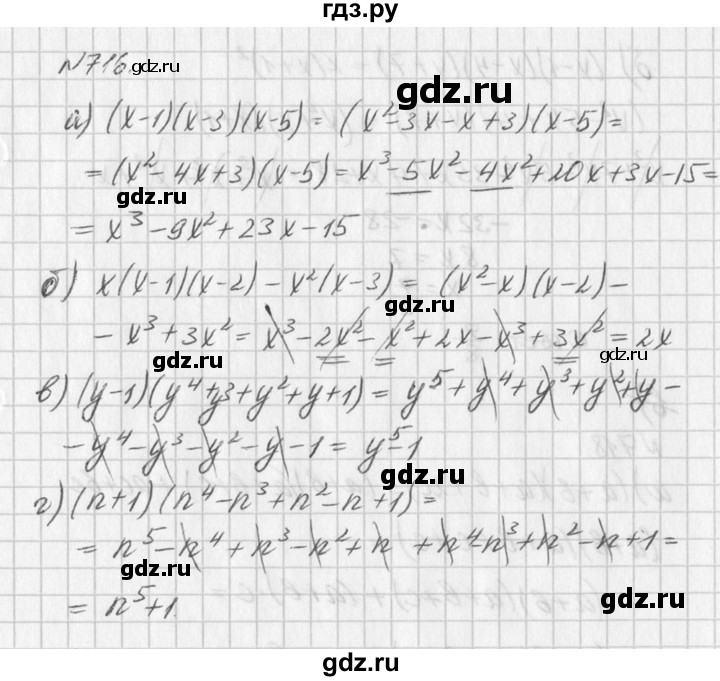 гдз.ру
№716.
gdz.ru
а) (x-1)(x-3)(x-5) = (x²-3x-x+3)(x-5) =
gdz.ru
= (x²-4x+3)(x-5) = x³-5x²-4x²+20x+3x-15 =
gdz.ru
= x³-9x²+23x-15
gdz.ru
б) x(x-1)(x-2) - x²(x-3) = (x²-x)(x-2) -
gdz.ru
- x³+3x² = x³-2x²-x²+2x-x³+3x² = 2x
gdz.ru
gdz.ru
в) (y-1)(y⁴+y³+y²+y+1) = y⁵+y⁴+y³+y²+y-
-y⁴-y³-y²-y-1 = y⁵-1
gdz.ru
г) (n+1)(n⁴-n³+n²-n+1) =
gdz.ru
= n⁵-n⁴+n³-n²+n +n⁴-n³+n²-n+1 =
gdz.ru
gdz.ru
= n⁵+1
gdz.ru
gdz.ru